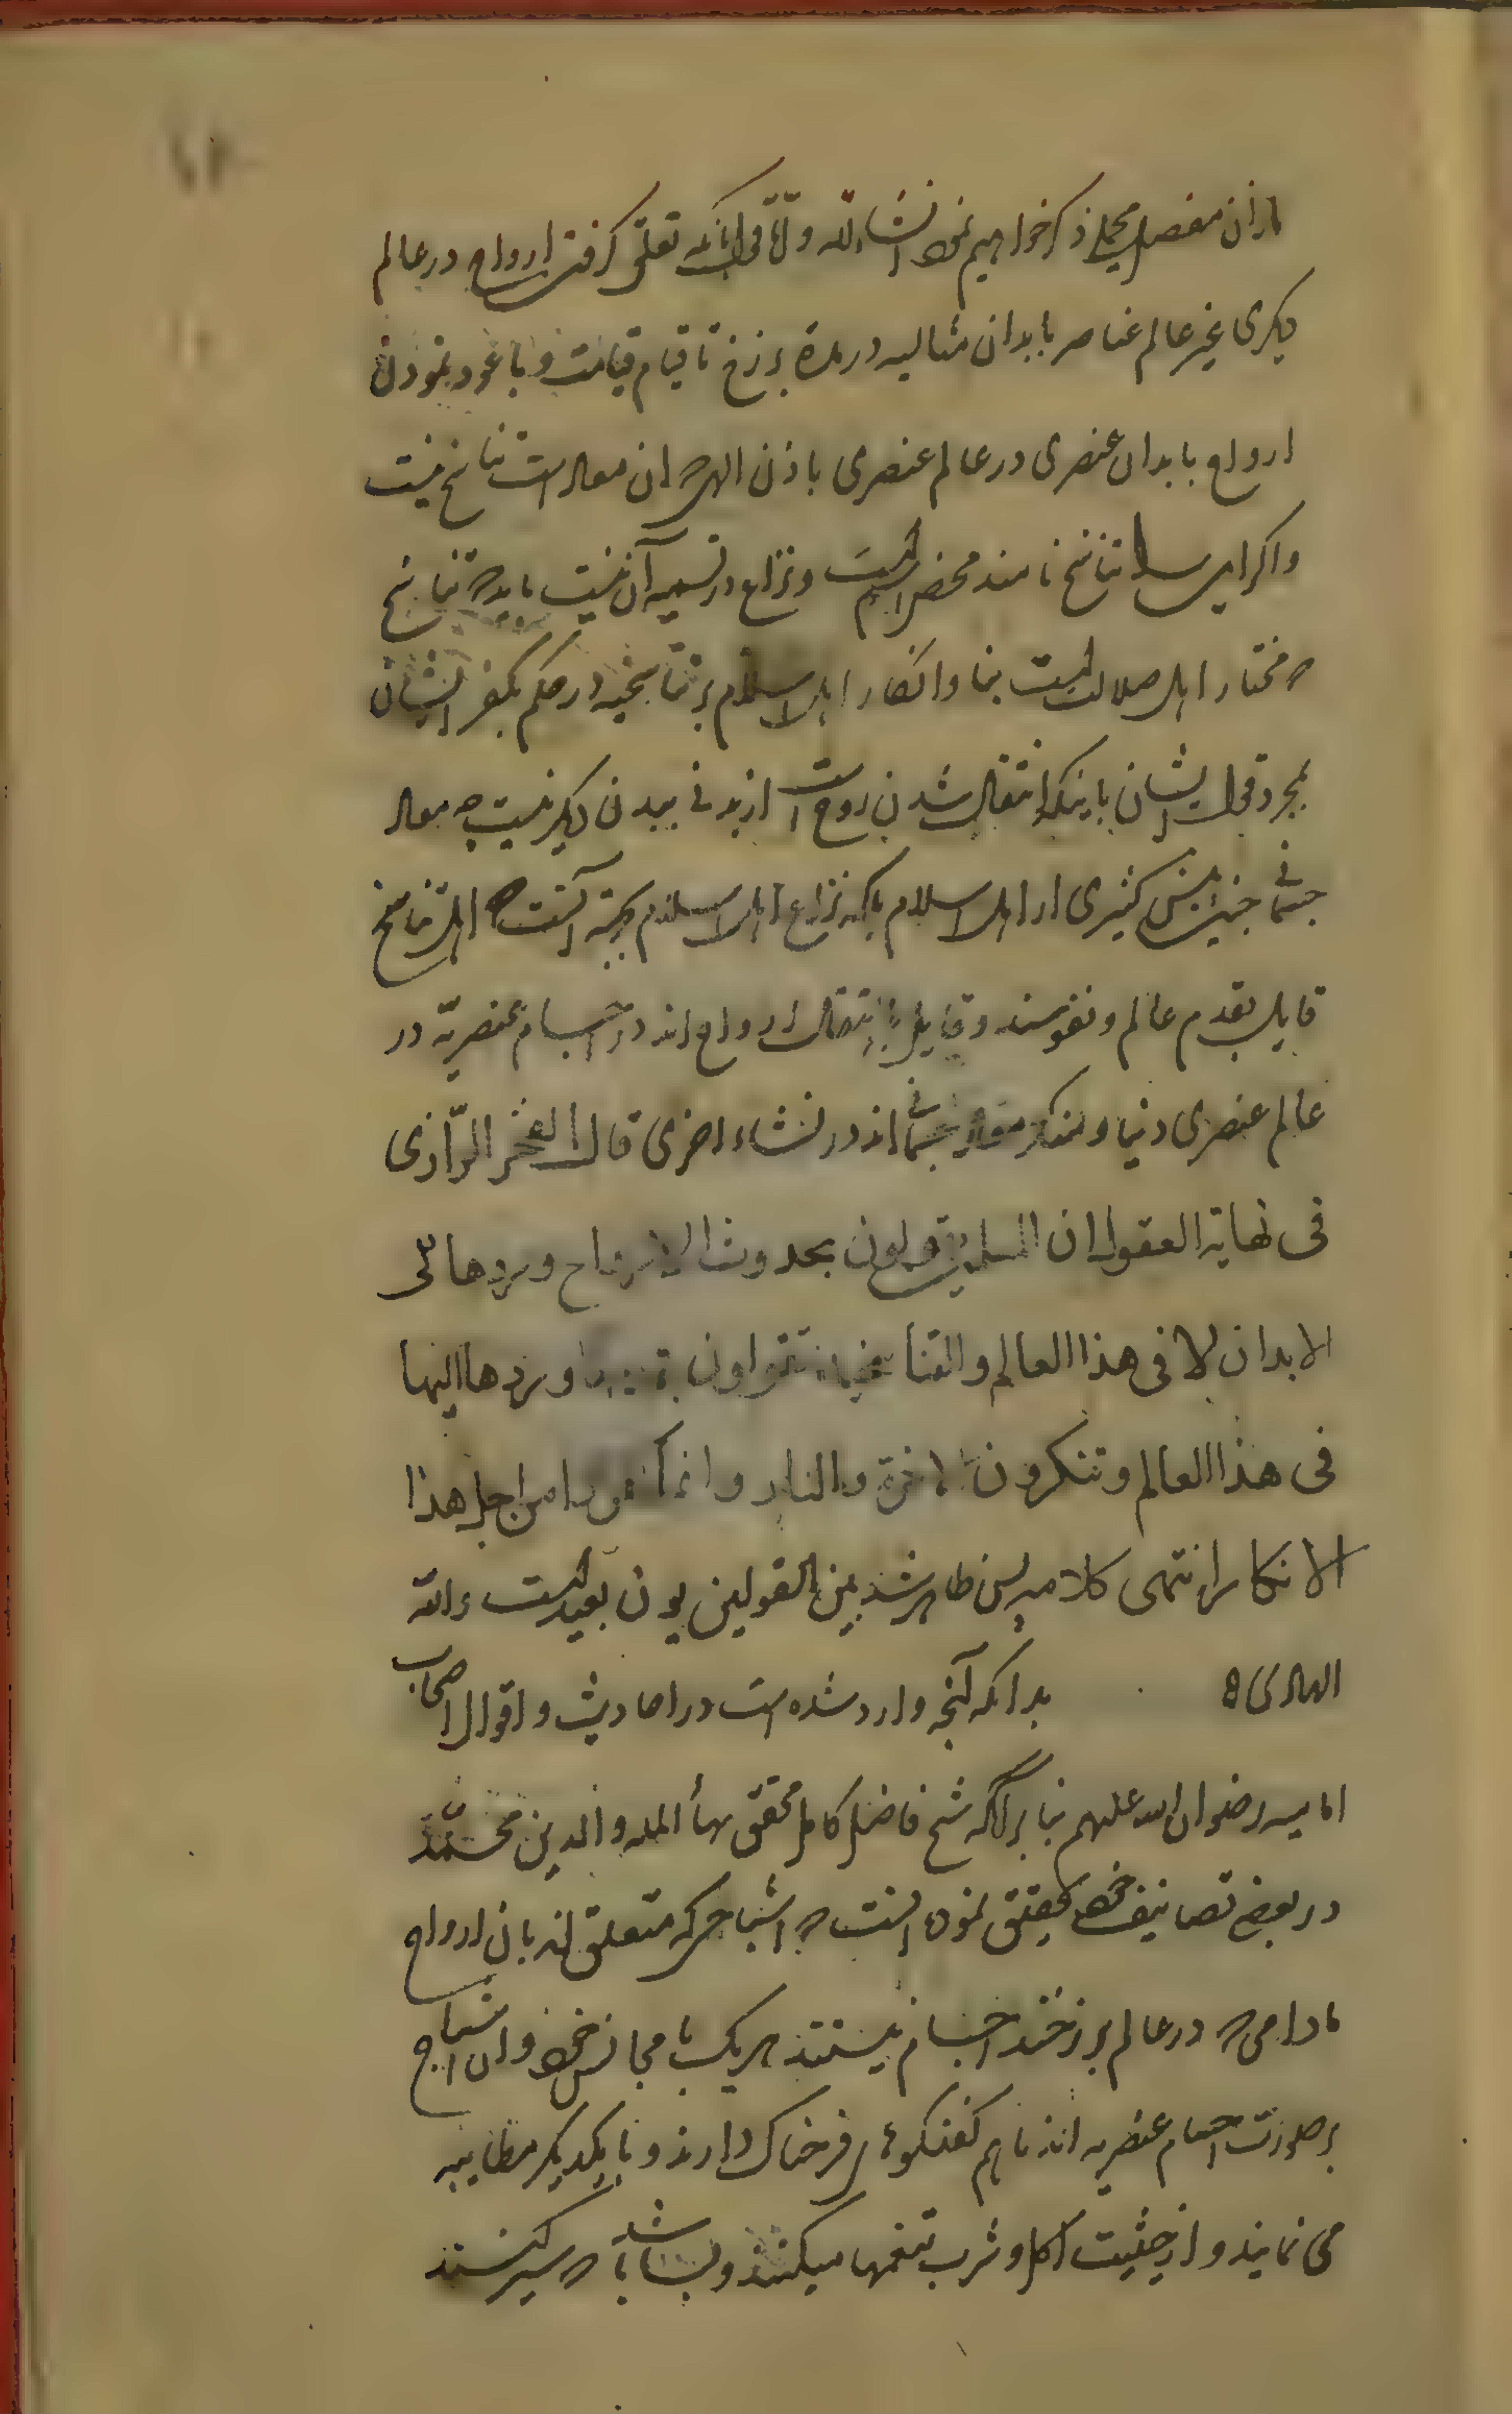 ذکر خواهیم نمود انشاءالله تعلق گرفتن ارواح در عالم
دیکری غیر عالم عناصر بابدان مثالیه در مدة برزخ تا قیام قیامت و یا عود نمودن
ارواح بابدان عنصری در عالم عنصری باذن الهی که ان معاد است تناسخ نیست
واکر این را تناسخ نامند محض اسم است و نزاع در تسمیه آن نیست تناسخ
که مختار اهل ضلالت است وانکار اهل اسلام بر تناسخیه در حکم بکفر ایشان
بمجرد قول ایشان باینکه انتقال شدن روح است از بدنی ببدنی دیکر نیست چه معاد
جسمانی کثیری از اهل اسلام بلکه نزاع اهل اسلام بجهة آنست که اهل تناسخ
قایل بقدم عالم و نفوسند و قایل بانتقال ارواح اند در اجسام عنصریّه در
عالم عنصری دنیا و منکر معاد جسمانی اند در نشاء اخری قال الفخر الرّازی
فی نهایة العقول ان المسلمین یقولون بحدوث الارواح وردها الی
الابدان لا فی هذا العالم والتناسخیة یقولون وردها الیها
فی هذا العالم وتنکرون الاخرة والنار وانما من اجل هذا
الانکار انتهی کلامه پس ظاهر شد بین القولین بون بعید است والله
الهادی بدانکه آنچه وارد شده است در احادیث و اقوال اصحاب
امامیه رضوان الله علیهم بنا برآنکه شیخ فاضل کامل محقق بهأ المله والدین محمّد
در بعض تصانیف خود تحقیق نموده اینست که اشباحی که متعلق اند بان ارواح
مادامی که در عالم برزخند اجسام نیستند هریک با مجانس خود و ان اشباح
بر صورت اجسام عنصریه اند باهم کفتکوهای فرحناک دارند و با یکدیکر مطایبه
می نمایند و از حیثیت اکل و شرب تنعمها میکنند و بسا باشد که سیر کنند